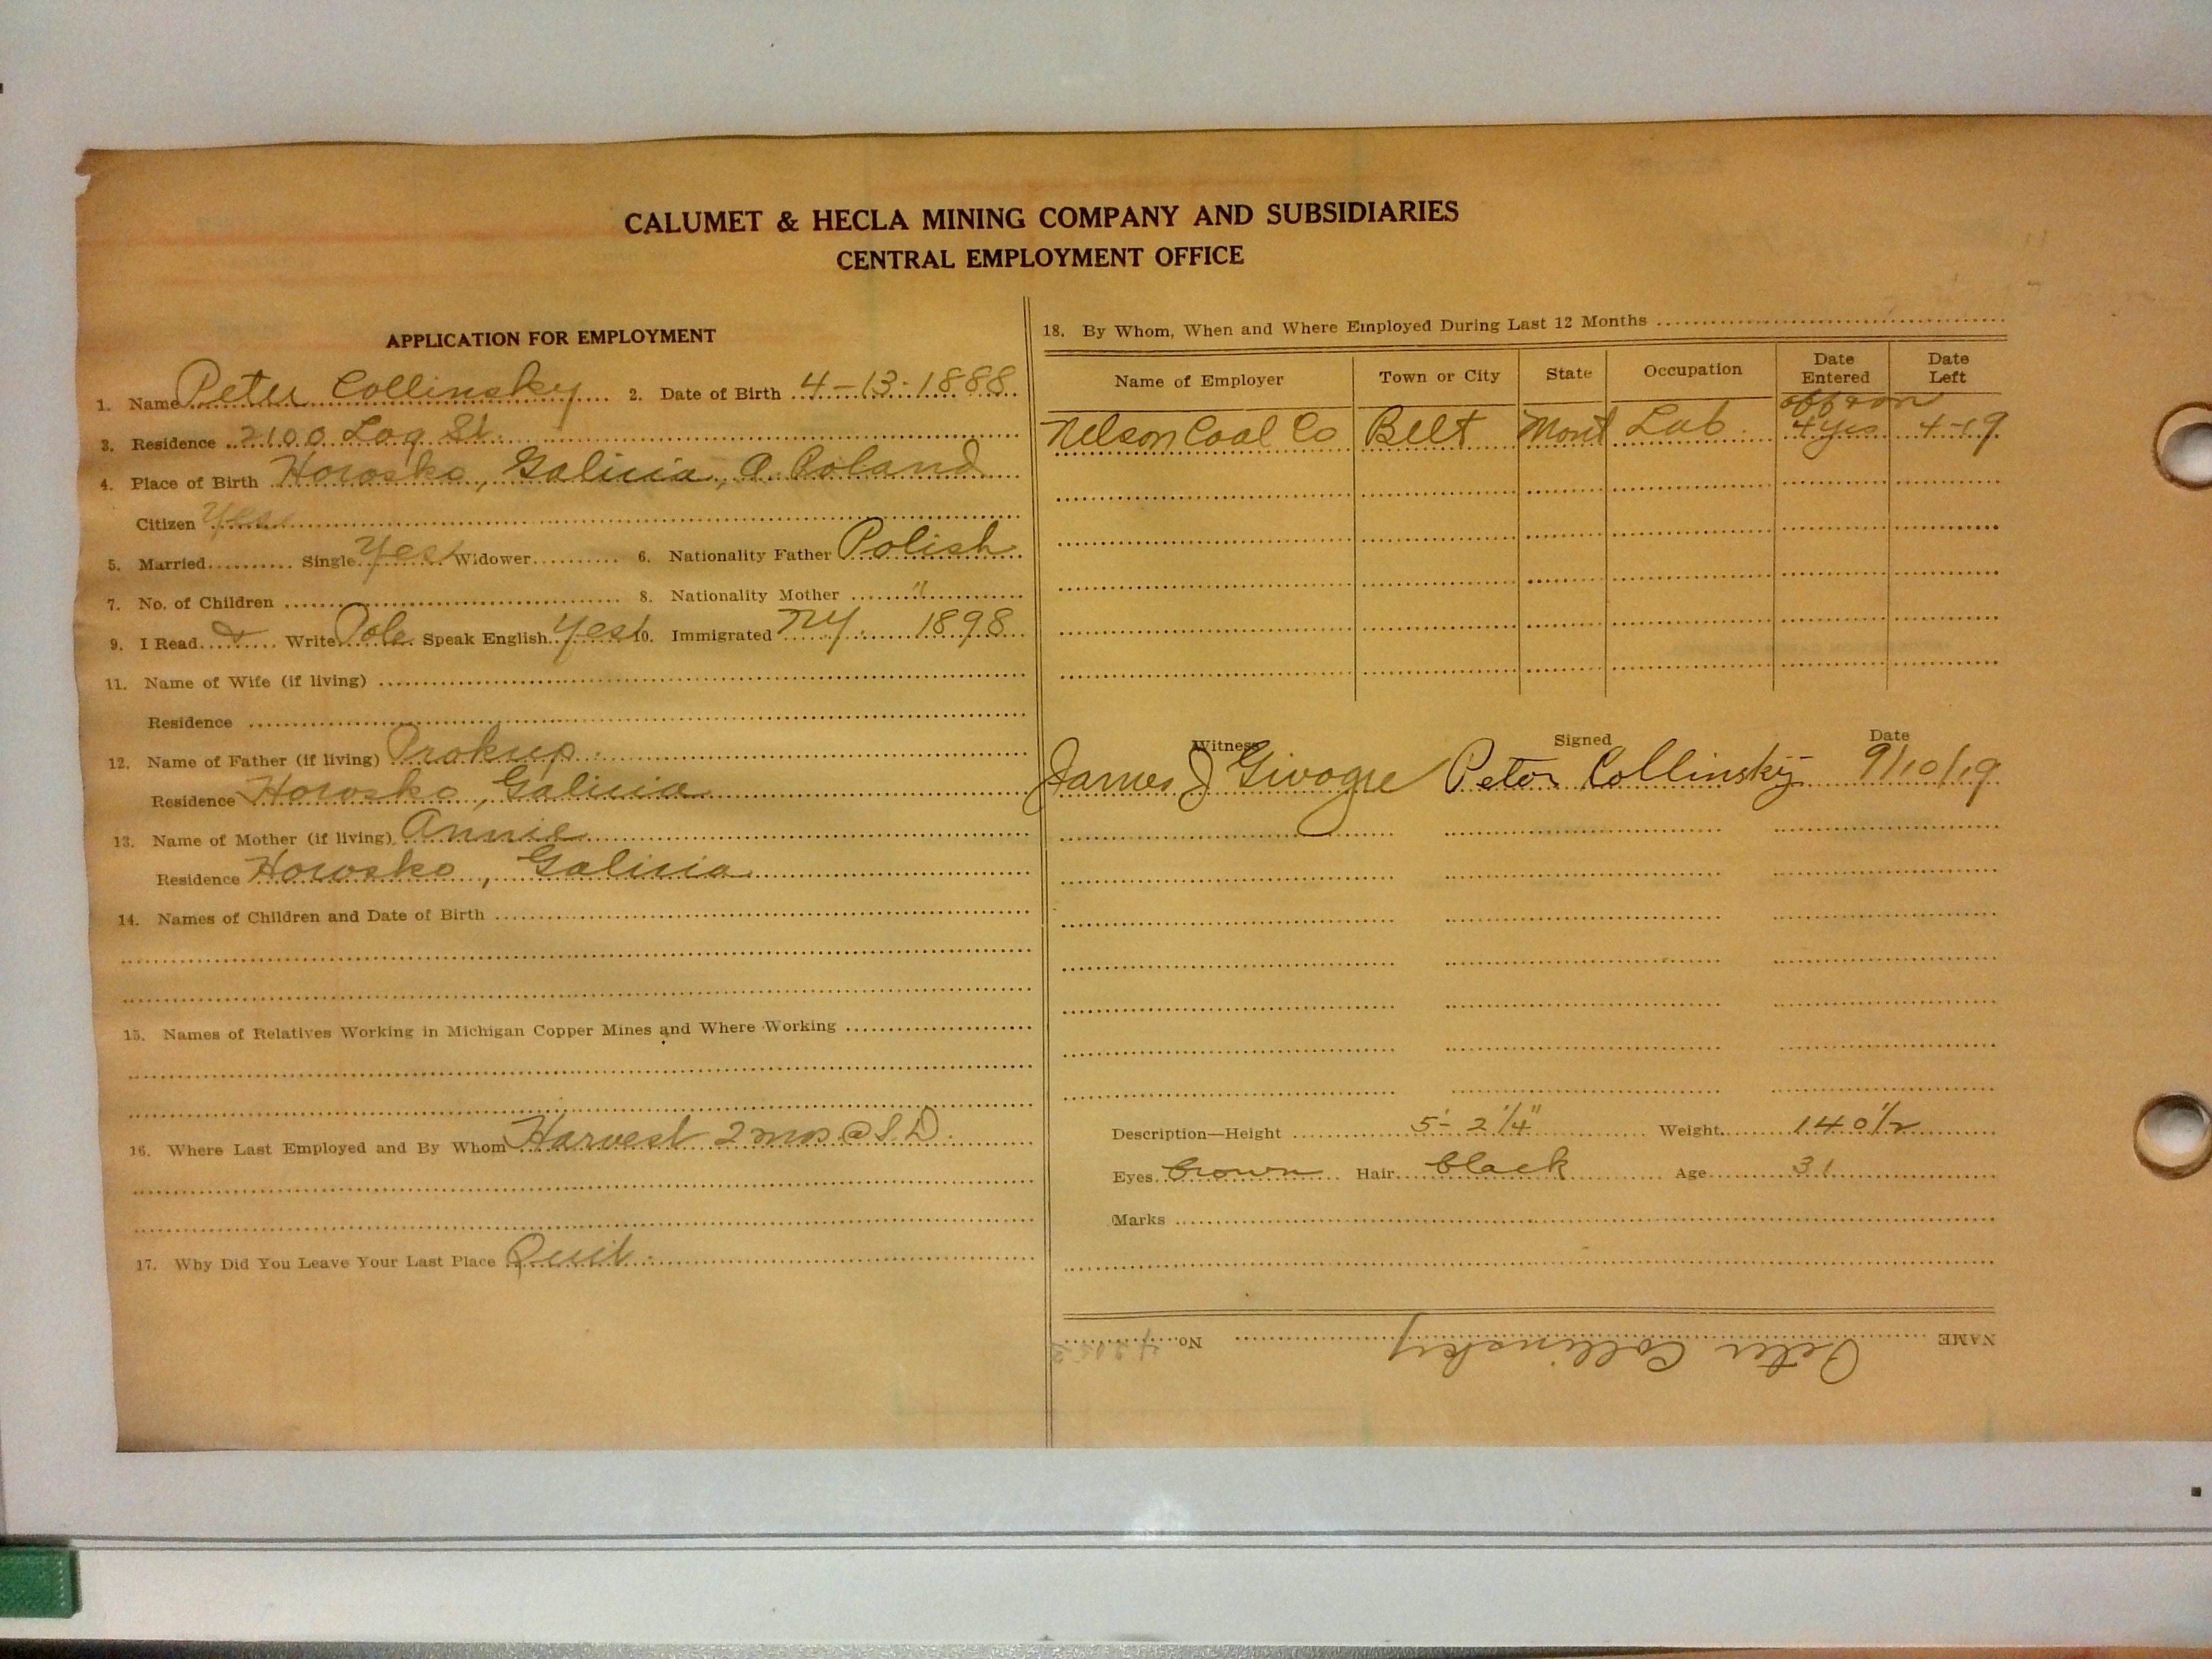 CALUMET & HECLA MINING COMPANY AND SUBSIDIARIES
CENTRAL EMPLOYMENT OFFICE
APPLICATION FOR EMPLOYMENT
1. Name Peter Collinsky 2. Date of Birth 4-13-1888
3. Residence 2100 Log St.
4. Place of Birth Howosko, Galicia, A. Poland
Citizen Yes
5. Married Single Yes Widower 6. Nationality Father Polish
7. No. of Children 8. Nationality Mother "
9. I Read & Write Pole Speak English Yes 10. Immigrated NY. 1898
11. Name of Wife (if living)
Residence
12. Name of Father (if living) Prokup
Residence Howosko, Galicia
13. Name of Mother (if living) Annie
Residence Howosko, Galicia
14. Names of Children and Date of Birth
15. Names of Relatives Working in Michigan Copper Mines and Where Working
16. Where Last Employed and By Whom Harvest 2 mos @ S.D.
17. Why Did You Leave Your Last Place Quit.
18. By Whom, When and Where Employed During Last 12 Months
Name of Employer Town or City State Occupation Date Entered Date Left
Nelson Coal Co Belt Mont Lab. off & on 4 yrs 4-19
Witness Signed Date
James J Peter Collinsky 9/10/19
Description—Height 5'-2 1/4" Weight 140 1/2
Eyes Brown Hair black Age 31
Marks
NAME Peter Collinsky No.